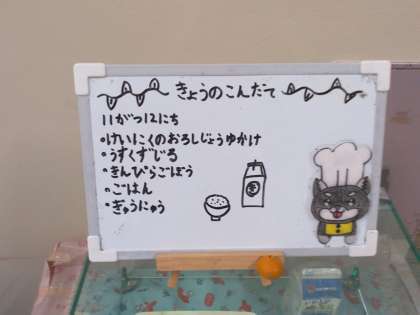 きょうのこんだて
11がつ12にち
・けいにくのおろしじょうゆかけ
・うすくずじる
・きんぴらごぼう
・ごはん
・ぎゅうにゅう